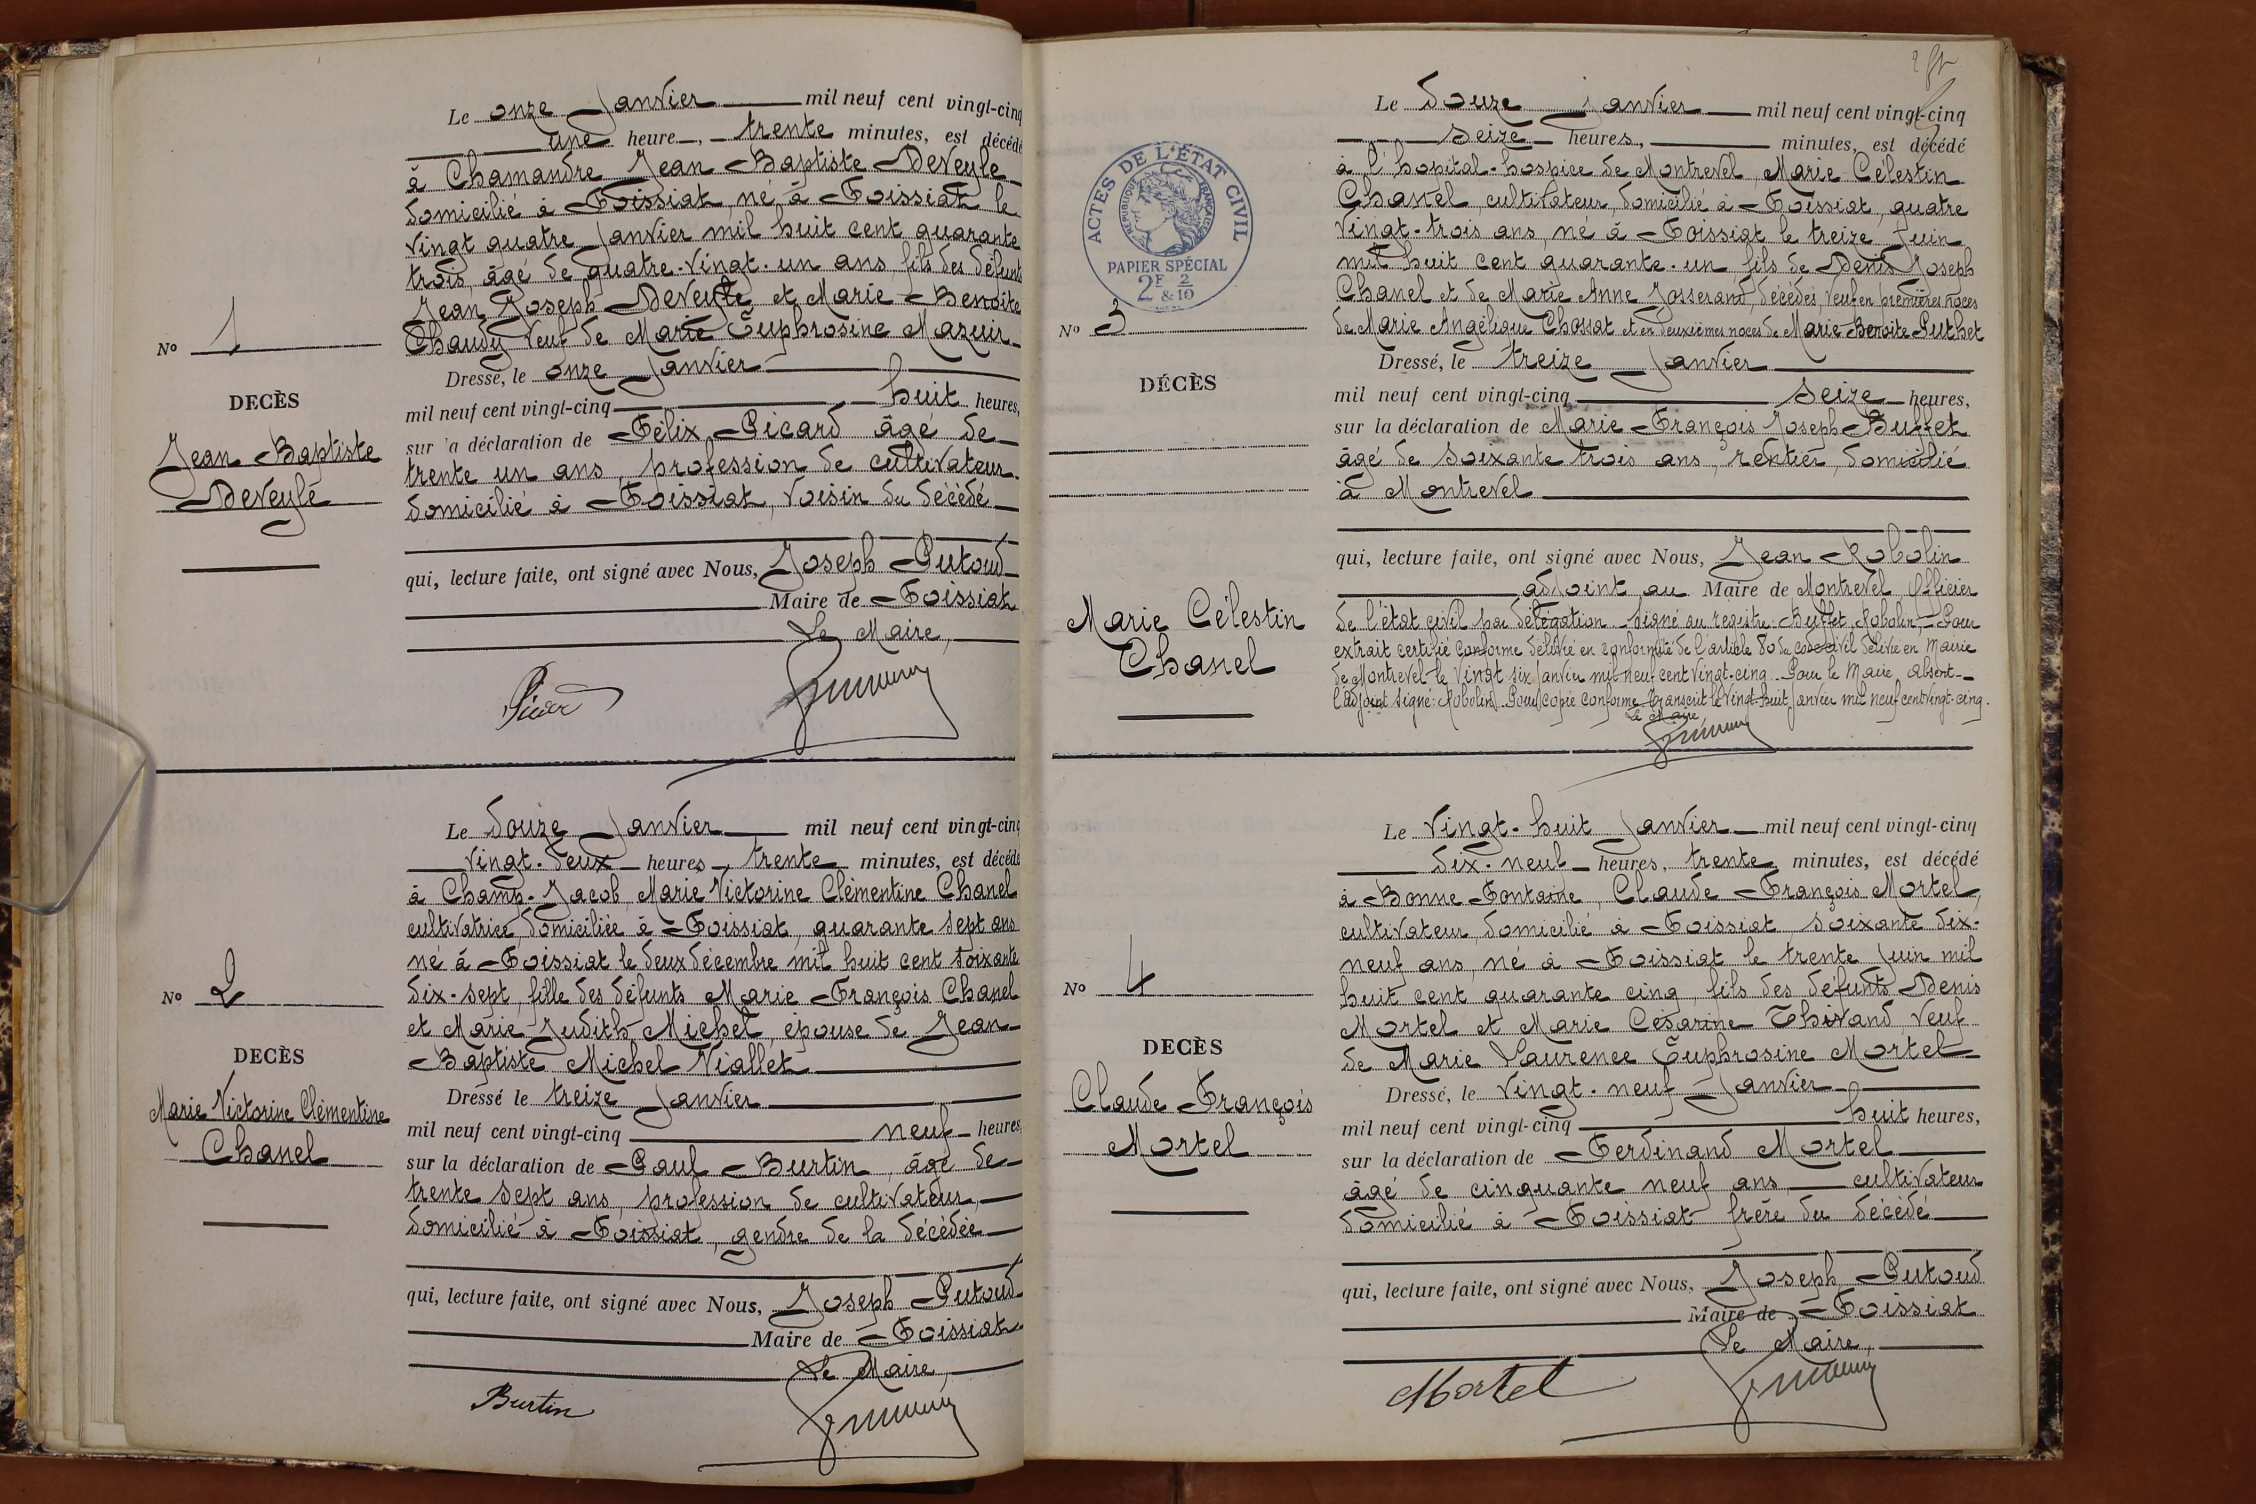 Le onze Janvier mil neuf cent vingt-cinq
une heure, trente minutes, est décédé
à Chamandre Jean Baptiste Deveyle
domicilié à Foissiat, né à Foissiat le
vingt quatre Janvier mil huit cent quarante
trois, âgé de quatre-vingt-un ans, fils des défunts
Jean Joseph Deveyle et Marie Benoite
Chaudy veuf de Marie Euphrosine Mazuir
Nº 1
Dressé, le onze Janvier
DECÈS
mil neuf cent vingt-cinq huit heures,
sur la déclaration de Félix Picard âgé de
Jean Baptiste
trente un ans, profession de cultivateur
Deveylé
domicilié à Foissiat, voisin du décédé
qui, lecture faite, ont signé avec Nous, Joseph Putoud
Maire de Foissiat
Le Maire,
Picard
Le douze Janvier mil neuf cent vingt-cinq
vingt-deux heures, trente minutes, est décédé
à Champ-Jacob, Marie Victorine Clémentine Chanel
cultivatrice, domiciliée à Foissiat, quarante sept ans
né à Foissiat le deux décembre mil huit cent soixante
Nº 2
dix-sept, fille des défunts Marie François Chanel
et Marie Judith Michel, épouse de Jean
DECÈS
Baptiste Michel Viallet
Dressé le treize Janvier
Marie Victorine Clémentine
mil neuf cent vingt-cinq neuf heures,
Chanel
sur la déclaration de Paul Burtin, âgé de
trente sept ans, profession de cultivateur,
domicilié à Foissiat, gendre de la décédée
qui, lecture faite, ont signé avec Nous, Joseph Putoud
Maire de Foissiat
Le Maire,
Burtin
Le Douze Janvier mil neuf cent vingt-cinq
seize heures, minutes, est décédé
à l'hopital-hospice de Montrevel, Marie Célestin
Chanel, cultivateur, domicilié à Foissiat, quatre
vingt-trois ans, né à Foissiat le treize Juin
mil huit cent quarante-un fils de Denis Joseph
Chanel et de Marie Anne Josserand, décédés, veuf en premières noces
de Marie Angélique Chossat et en deuxièmes noces de Marie Benoite Puthet
ACTES DE L'ÉTAT CIVIL
RÉPUBLIQUE FRANÇAISE
PAPIER SPÉCIAL
2F & 2/10
Nº 3
Dressé, le treize Janvier
DÉCÈS
mil neuf cent vingt-cinq seize heures,
sur la déclaration de Marie François Joseph Buffet
âgé de soixante trois ans, rentier, domicilié
à Montrevel
qui, lecture faite, ont signé avec Nous, Jean Robolin
adjoint au Maire de Montrevel, Officier
Marie Célestin
Chanel
de l'état civil par délégation signé au registre Buffet, Robolin, Pour
extrait certifié conforme délivré en conformité de l'article 80 du code civil délivré en Mairie
de Montrevel le vingt six Janvier mil neuf cent vingt-cinq Pour le Maire absent
l'adjoint signé: Robolin. Pour copie conforme transcrit le vingt-huit Janvier mil neuf cent vingt-cinq.
Le Maire
Le vingt-huit Janvier mil neuf cent vingt-cinq
dix-neuf heures, trente minutes, est décédé
à Bonne Fontaine, Claude François Mortel,
cultivateur, domicilié à Foissiat soixante dix-
neuf ans, né à Foissiat le trente Juin mil
Nº 4
huit cent quarante cinq, fils des défunts Denis
Mortel et Marie Césarine Thivand, veuf
DECÈS
de Marie Laurence Euphrosine Mortel
Dressé, le vingt-neuf Janvier
Claude François
mil neuf cent vingt-cinq huit heures,
Mortel
sur la déclaration de Ferdinand Mortel
âgé de cinquante neuf ans, cultivateur
domicilié à Foissiat frère du décédé
qui, lecture faite, ont signé avec Nous, Joseph Putoud
Maire de Foissiat
Le Maire,
Mortel